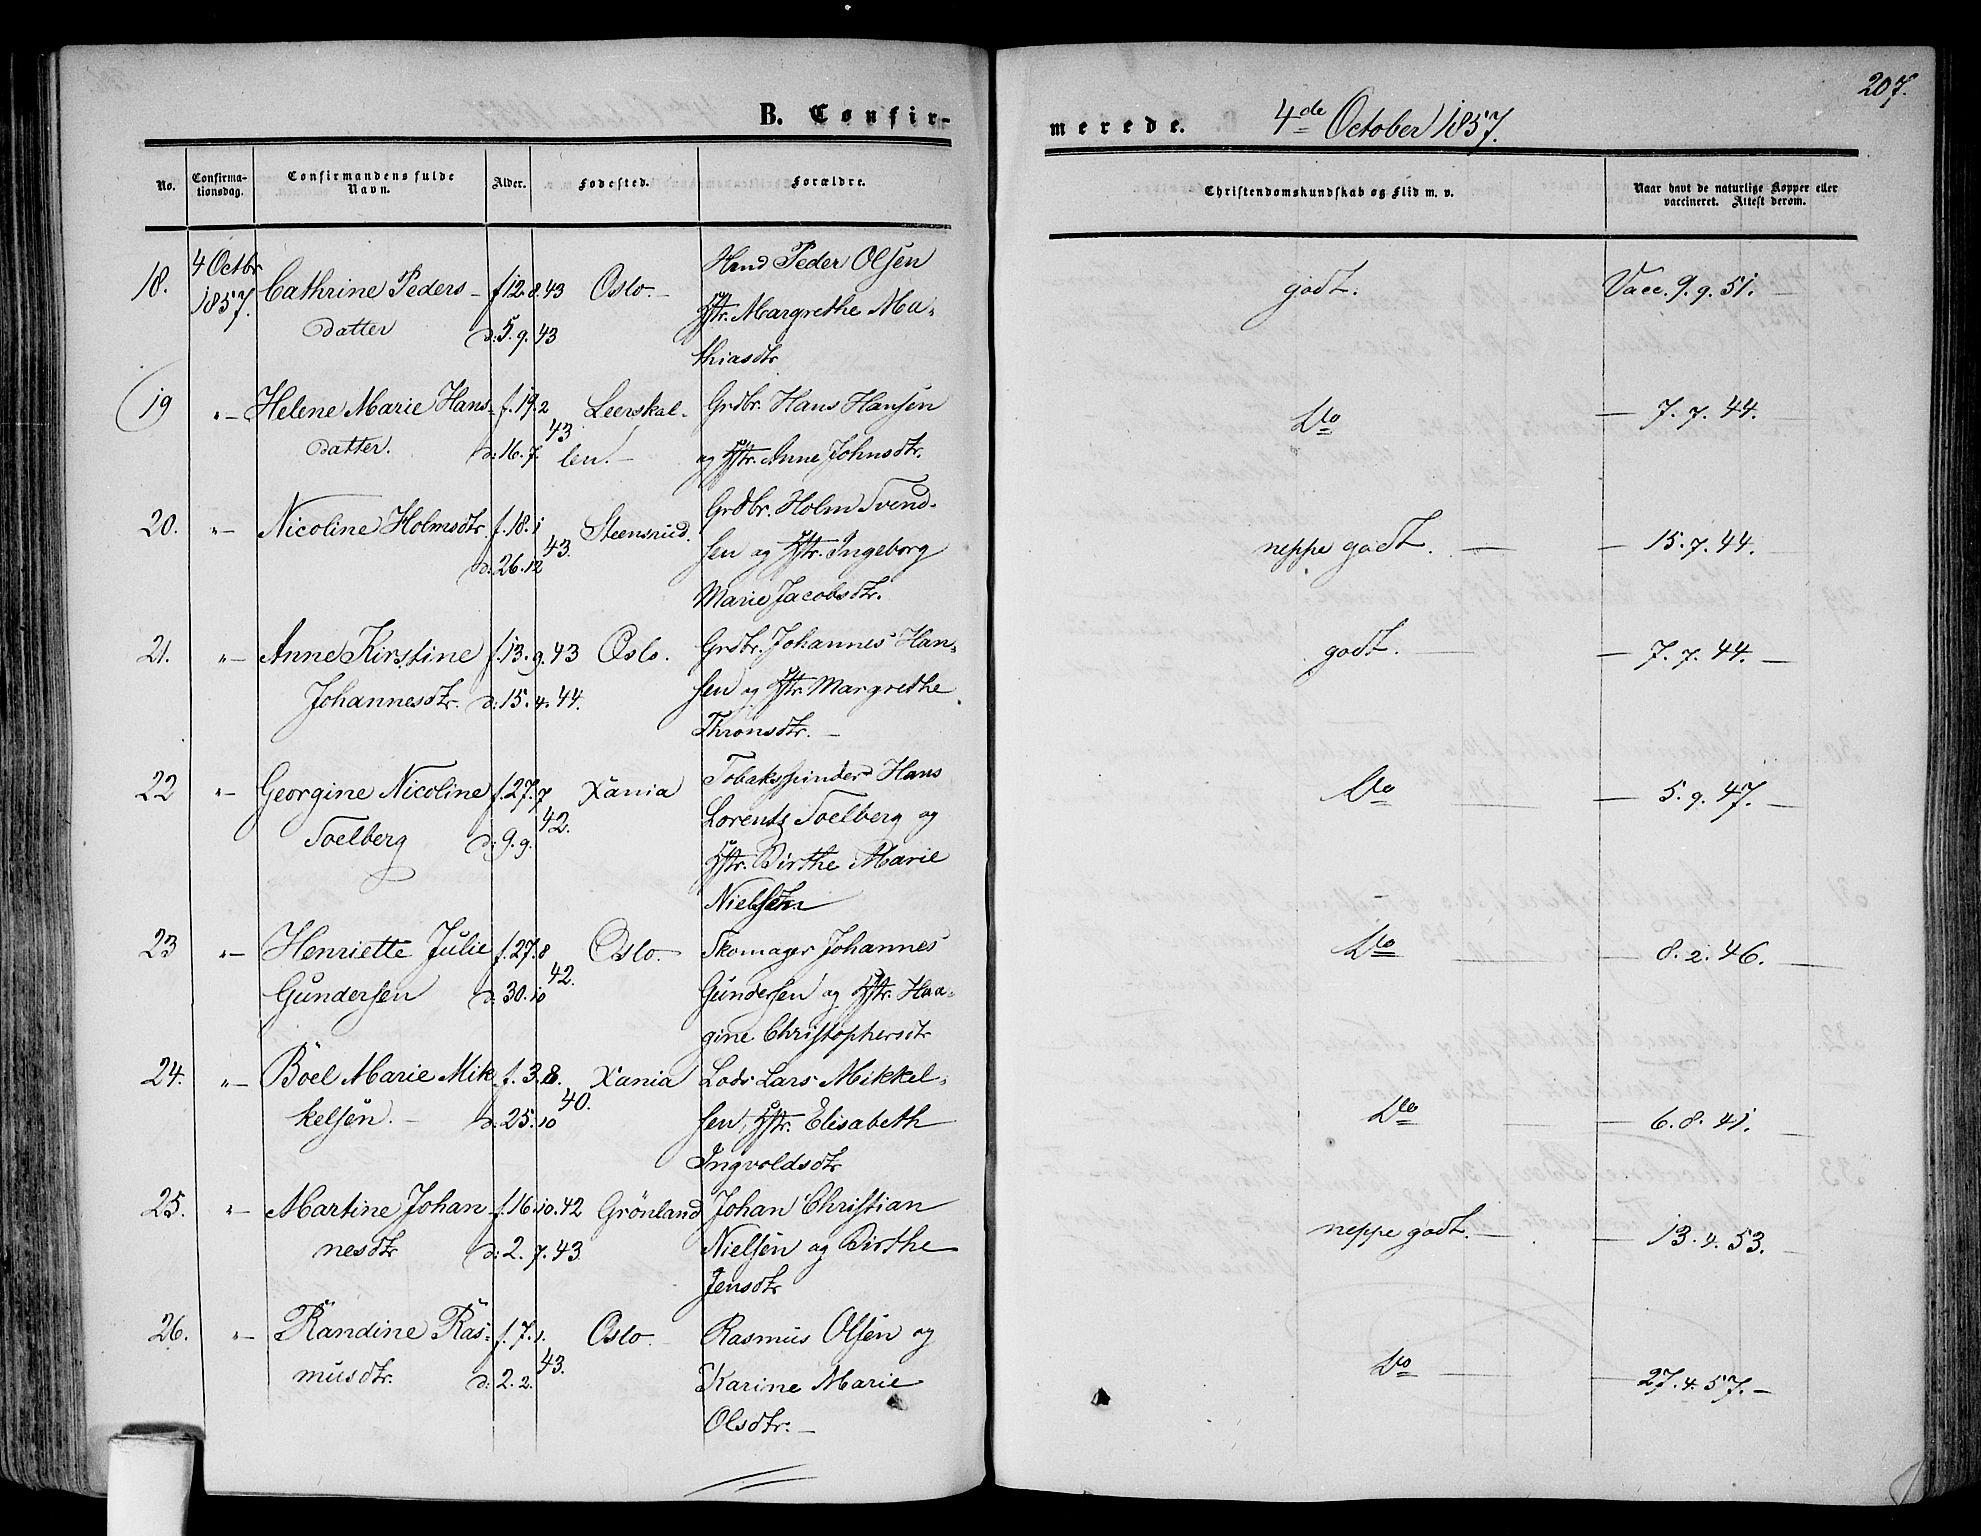 207.
B. Confir-
merede. 4de October 1857.
No. Confirma-tionsdag. Confirmandens fulde Navn. Alder. Fødested. Forældre. Christendomskundskab og Flid m. v. Naar havt de naturlige Kopper eller vaccineret. Attest derom.
4 Octbr Hmd Peder Olsen
18. 1857. Cathrine Peders- f 12. 8. 43 Oslo. Hstr. Margrethe Ma- godt. Vacc. 9. 9. 51.
datter d: 5. 9. 43 thiasdtr.
19 "- Helene Marie Hans- f. 19. 2 Leerskal- Grdbr. Hans Hansen Do 7. 7. 44.
datter. d: 16. 7. 43 len. og Hstr. Anne Johnsdtr.
20. "- Nicoline Holmsdtr. f. 18. 1 Steensrud. Grdbr. Holm Svend-
d: 26. 12 43. sen og Hstr. Ingeborg neppe godt. 15. 7. 44.
Marie Jacobsdtr.
21. "- Anne Kirstine f. 13. 9. 43 Oslo. Grdbr. Johannes Han- godt. 7. 7. 44.
Johannesdtr. d: 15. 4. 44. sen og Hstr. Margrethe
Thronsdtr.
22 "- Georgine Nicoline f. 27. 7 Xania Tobaksspinder Hans Do 5. 9. 47.
Soelberg d: 9. 9. 42. Lorents Soelberg og
Hstr. Birthe Marie
Nielsen
23 "- Henriette Julie f. 27. 8 Oslo. Skomager Johannes Do 8. 2. 46.
Gundersen d. 30. 10 42. Gundersen og Hstr. Haa-
gine Christophersdtr
24. "- Böel Marie Mik f. 3. 8. Xania Lods Lars Mikkel-
kelsen. d. 25. 10 40. sen, Hstr. Elisabeth Do 6. 8. 41.
Ingvoldsdtr
25. "- Martine Johan f. 16. 10. 42 Grönland Johan Christian
nesdtr d: 2. 7. 43 Nielsen og Birthe neppe godt. 13. 4. 53.
Jensdtr
26. "- Randine Ras- f. 7. 1. Oslo. Rasmus Olsen og
musdtr. d: 2. 2. 43. Karine Marie Do 27. 4. 57.
Olsdtr.